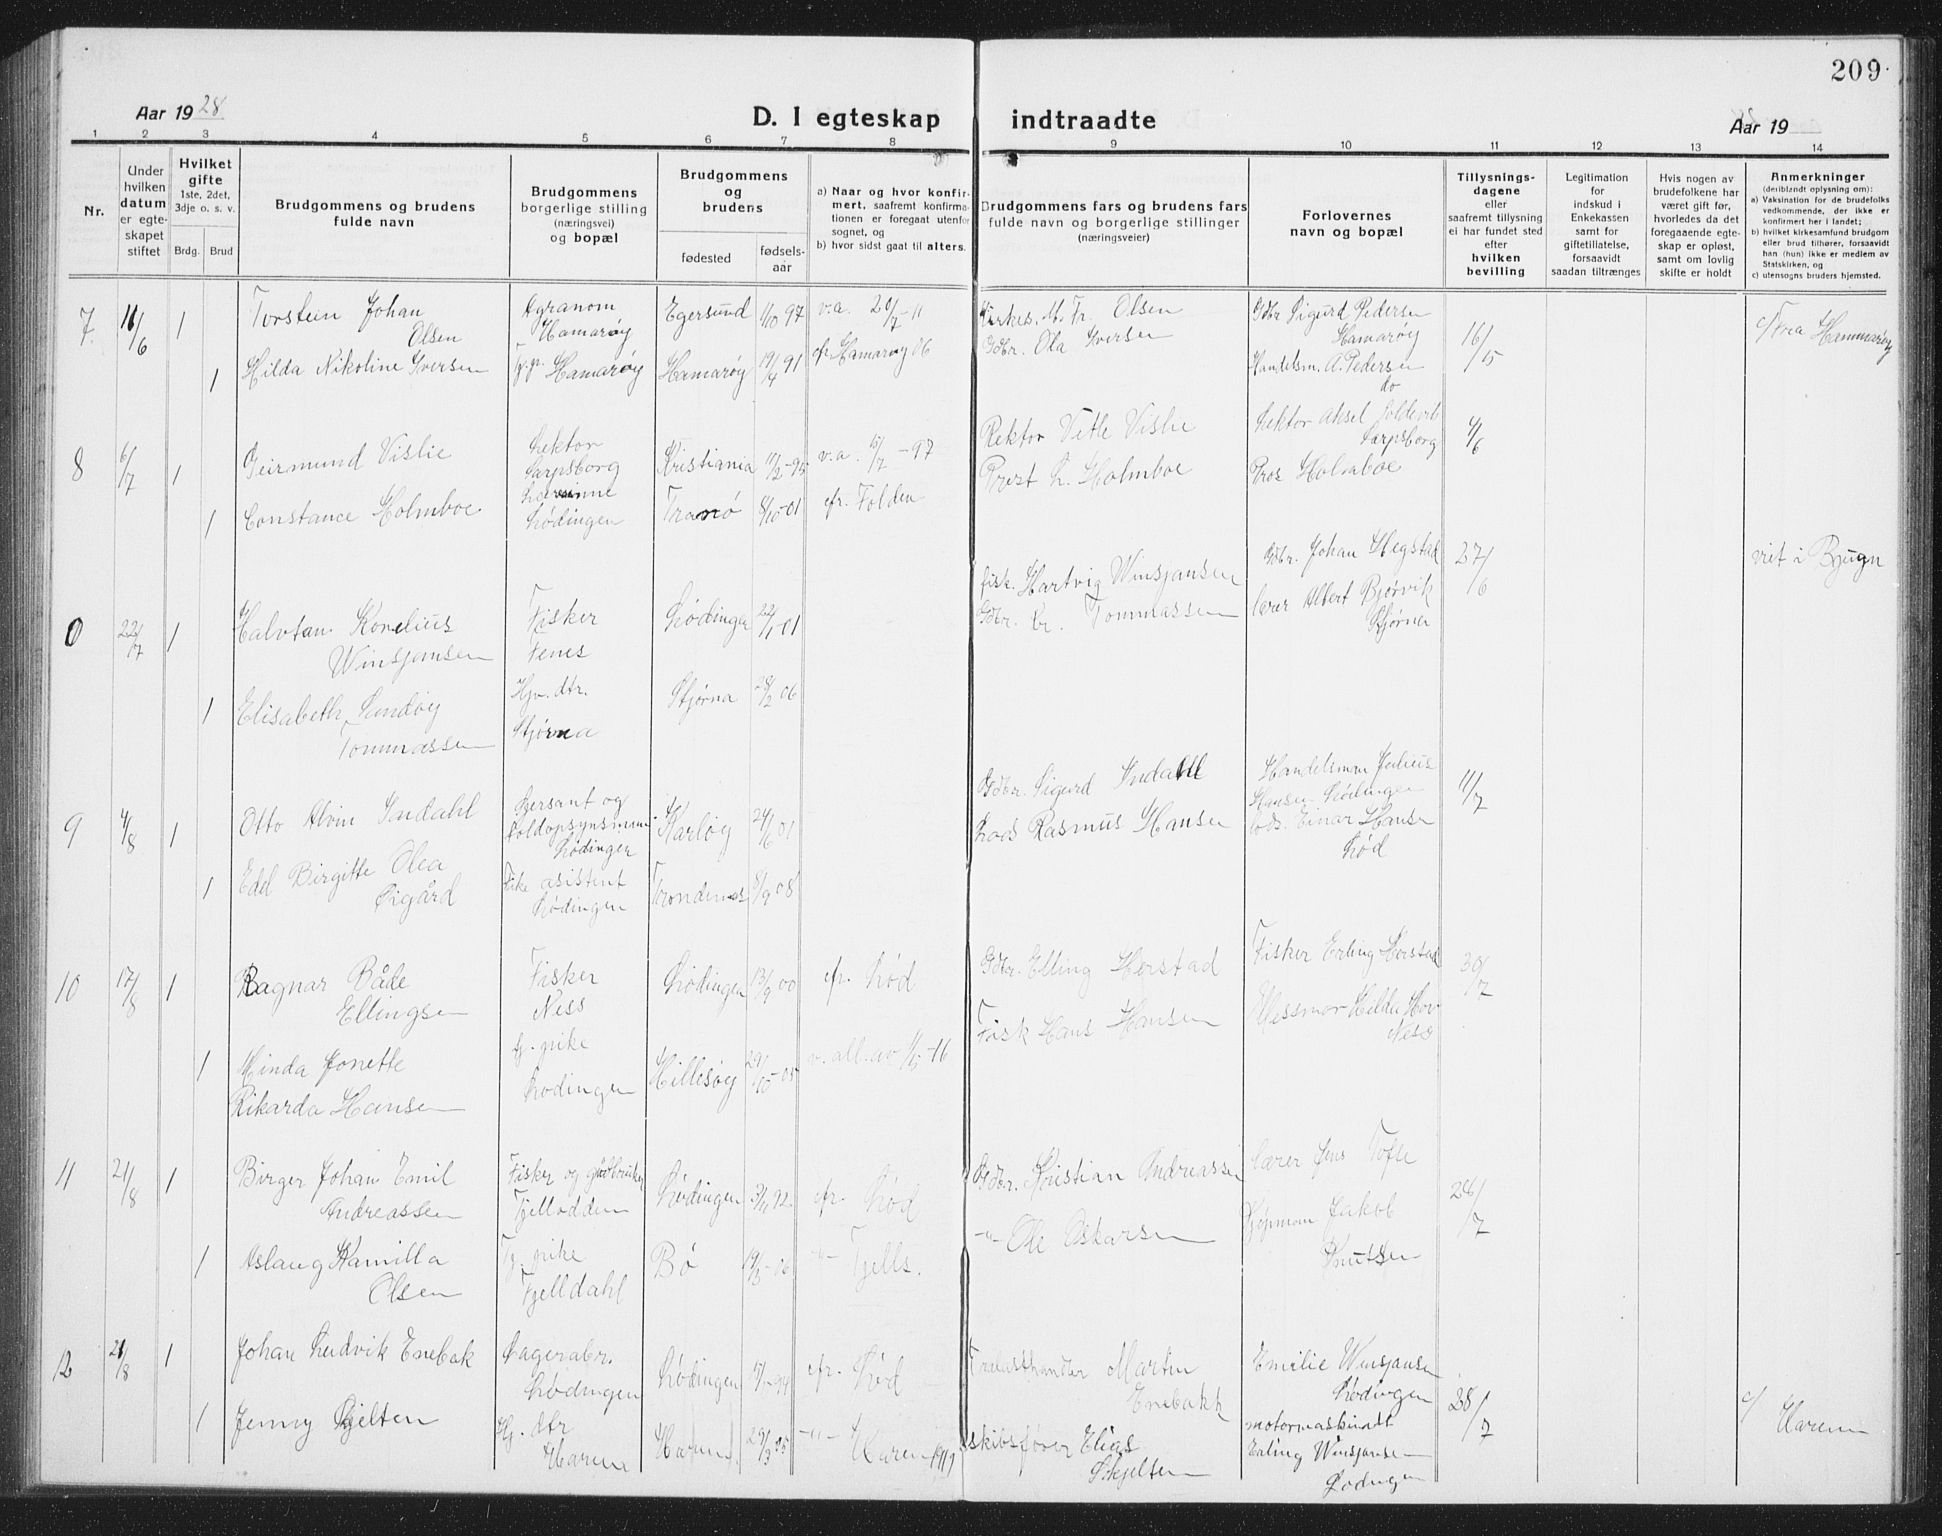 209.
Aar 1928
D. I egteskap indtraadte
Aar 19
1 2 3 4 5 6 7 8 9 10 11 12 13 14
Nr.
Under hvilken datum er egteskapet stiftet
Hvilket gifte 1ste, 2det, 3dje o. s. v.
Brdg. Brud
Brudgommens og brudens fulde navn
Brudgommens borgerlige stilling (næringsvei) og bopæl
Brudgommens og brudens
fødested
fødsels-aar
a) Naar og hvor konfirmert, saafremt konfirmationen er foregaat utenfor sognet, og
b) hvor sidst gaat til alters.
Brudgommens fars og brudens fars fulde navn og borgerlige stillinger (næringsveier)
Forlovernes navn og bopæl
Tillysningsdagene eller saafremt tillysning ei har fundet sted efter hvilken bevilling
Legitimation for indskud i Enkekassen samt for giftetillatelse, forsaavidt saadan tiltrænges
Hvis nogen av brudefolkene har været gift før, hvorledes da det foregaaende egteskap er opløst, samt om lovlig skifte er holdt
Anmerkninger (deriblandt oplysning om):
a) Vaksination for de brudefolks vedkommende, der ikke er konfirmert her i landet;
b) hvilket kirkesamfund brudgom eller brud tilhører, forsaavidt han (hun) ikke er medlem av Statskirken, og
c) utensogns bruders hjemsted.
7. 11/6 1 Torstein Johan Olsen
Agranom Hamarøy
Egersund 1/10 97
M. Fr. Olsen
Gdbr Sigurd Pedersen Hamarøy
16/15
Fra Hammarøy
1 Hilda Nikoline Iversen
Hamarøy
Hamarøy 19/4 91
cfr Hamarøy 06
Gdbr. Ola Iversen
Handelsm. A. Pedersen do
8 6/7 1 Geirmund Vislie
Lektor Sarpsborg
Kristiania 11/2-95
v.a. 15/7-97
Rektor Vetle Vislie
Lektor Aksel Sarpsborg
4/6
1 Constance Holmboe
Lærerinne Lødingen
Tranø 8/10-01
cfr. Folden
Prost L. Holmboe
Pros Holmboe
0 22/7 1 Halvtan Kornelius Winsjansen
Fisker Fenes
Lødingen 22/1-01
fisk. Hartvig Winsjansen
Gdbr. Johan Hegstad
27/6
viet i Bjugn
1 Elisabeth Sandøy Tommassen
Hjv. dtr. Stjørna
Stjørna 28/2 06
Gdbr. Kr. Tommassen
Lærer Albert Bjørvik Stjørna
9 4/8 1 Otto Alvin Indahl
Sersant og Toldopsynsmann Lødingen
Karløy 24/6 01
Gdbr. Sigurd Indahl
Handelsman Julius Hansen Lødingen
11/7
1 Edel Birgitte Olea Øigård
asistent Lødingen
Trondenes 8/9 08
Lods Rasmus Hansen
Lods. Einar Hansen Lød
10 17/8 1 Ragnar Båke Ellingsen
Fisker Ness
Lødingen 13/9 00
cfr. Lød
Gdbr. Elling Herstad
Fisker Erling Herstad
30/7
1 Minda Jonette Rikarda Hansen
tj. pike Lødingen
Hillesøy 29/10-05
Fisk Hans Hansen
Hilda Hov Ness
11 21/8 1 Birger Johan Emil Andreassen
Fisker og gårdbruker Fjellodden
Lødingen
cfr. Lød
Gdbr. Kristian Andreassen
Lærer Jens Tofte
1 Aslaug Kamilla Olsen
Tj. pike Fjelldahl
Bø
-"- Fjells.
-"- Ole Oskarsen
Kjøpman Jakob Knutsen
12 21/8 1 Johan Ludvik Enebak
Sagerabr. Lødingen
Lødingen
cfr. Lød
Trælasthandler Martin Enebakk
Emilie Winsjansen Lødingen
28/7
c/ Harem
1 Jenny Skjelten
Hj. dtr Harem
Haram
-"- Harem 1919
skibsfører Elias Skjelten
motormaskinist Erling Winsjansen Lødingen